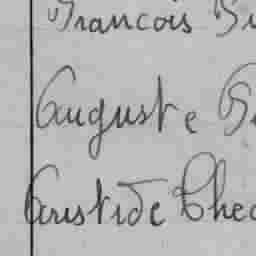 Francois
Auguste
Aristide Chea